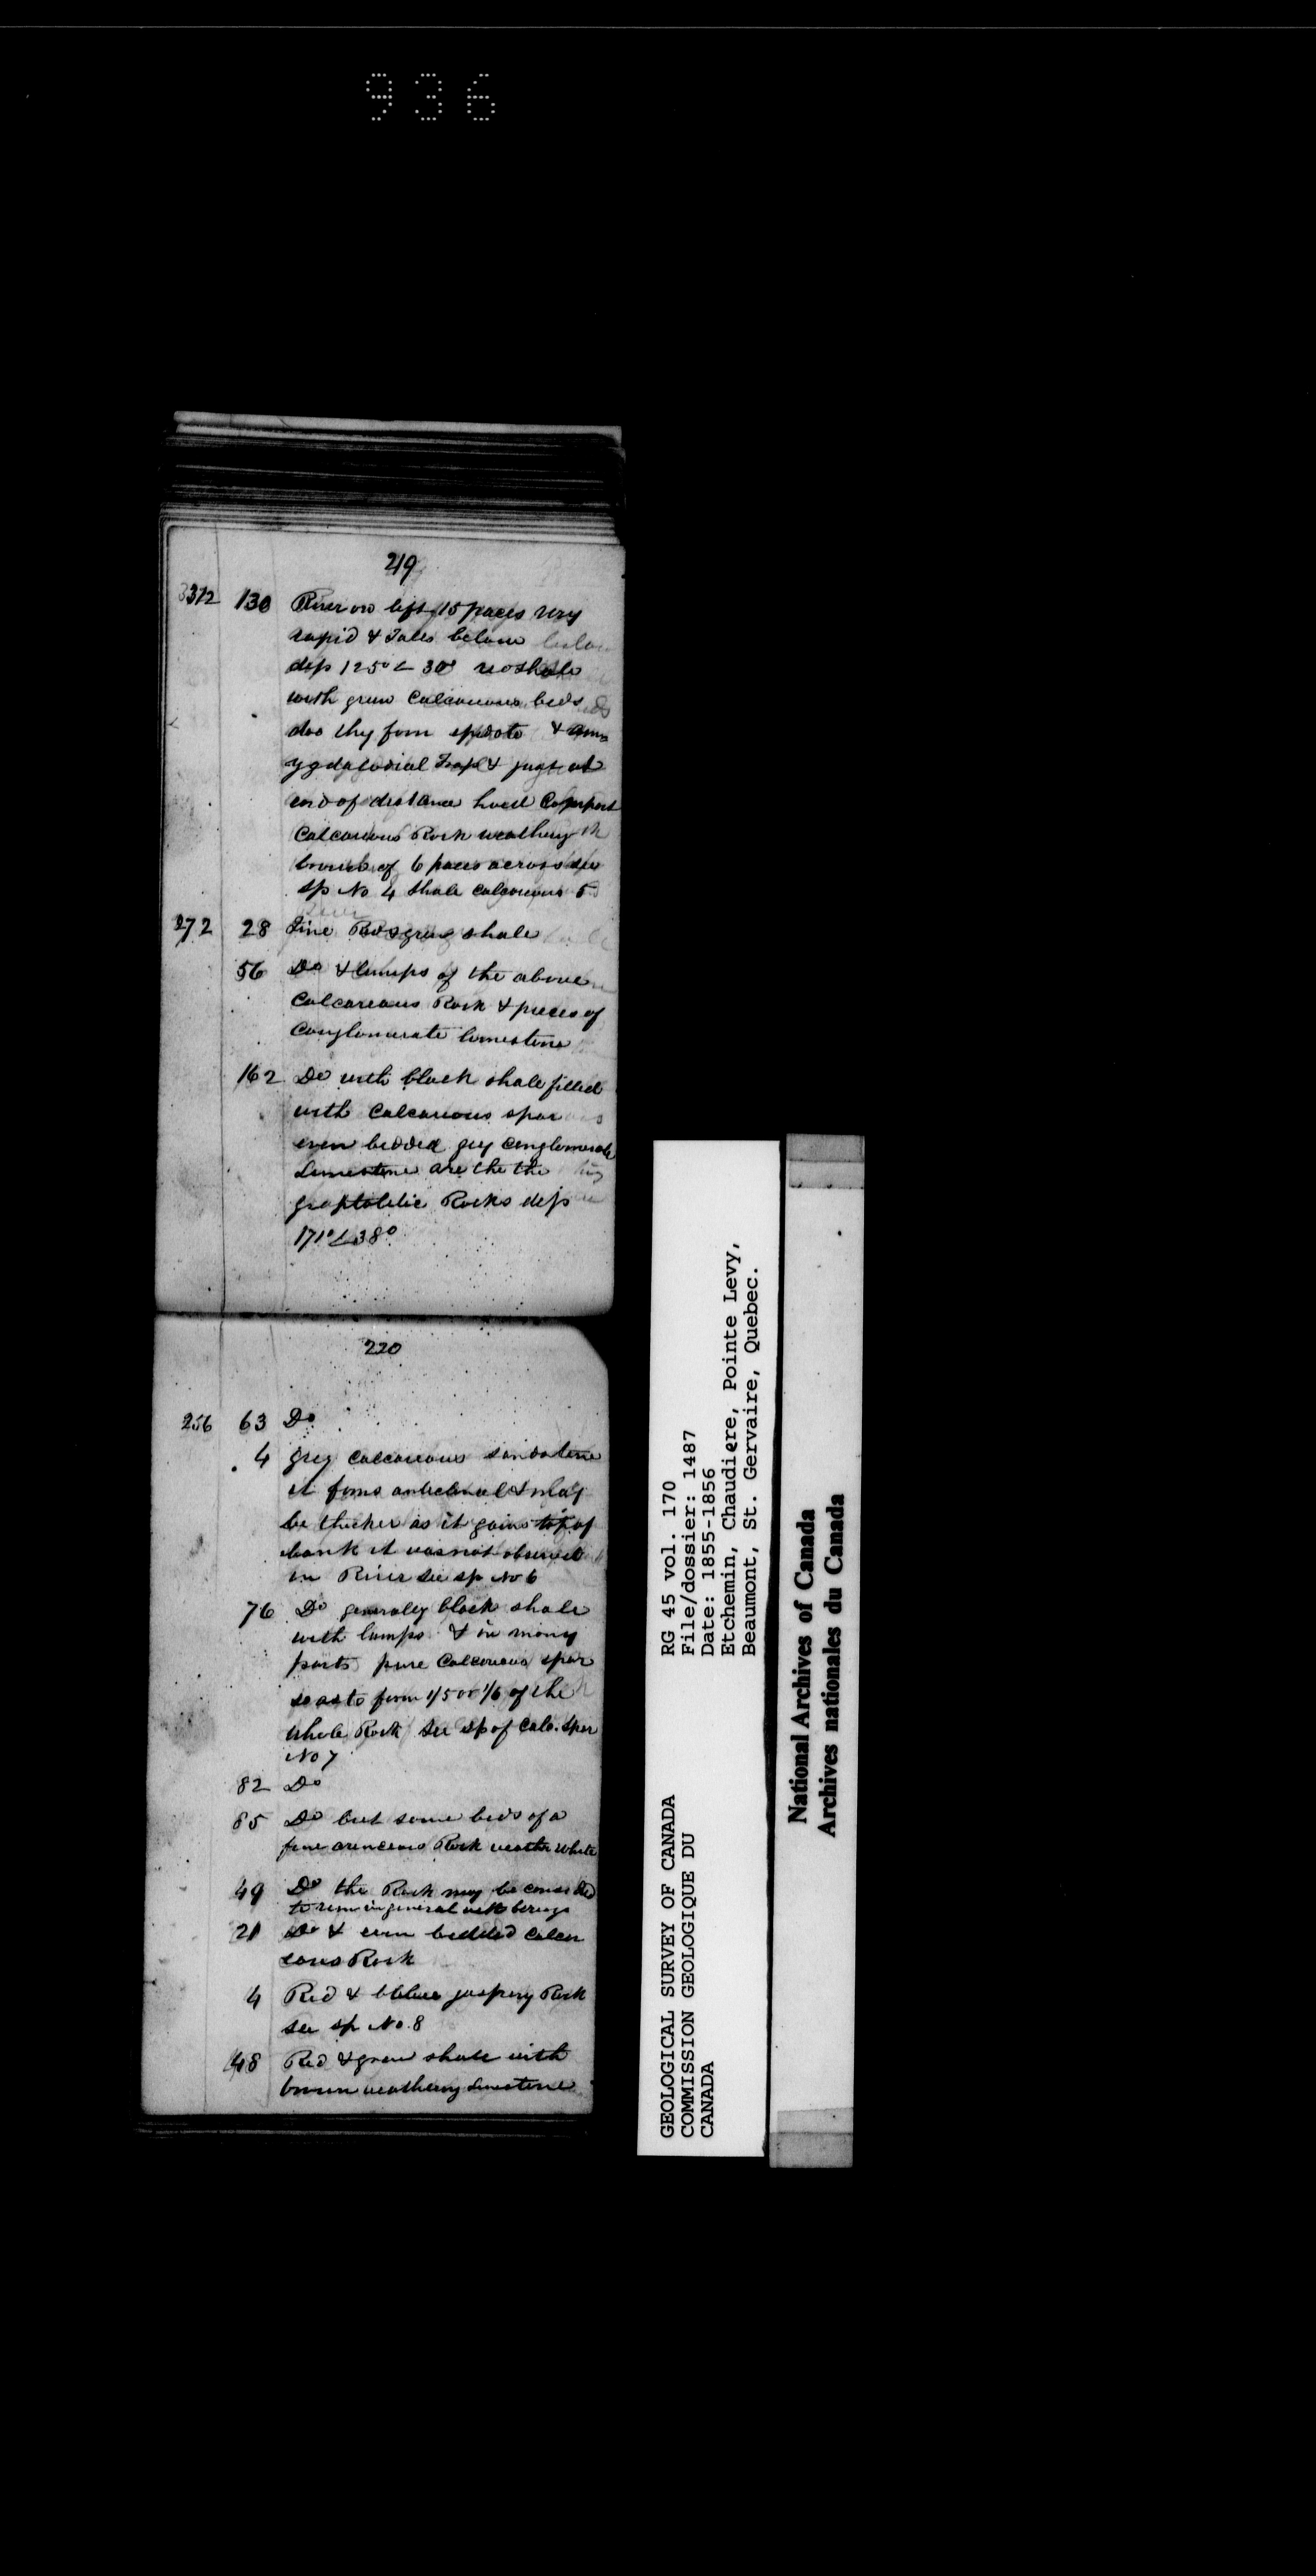 936
219
312 130 River on left 15 paces very
rapid & Falls below
dip 125° < 30° red shale
with green Calcareous beds
doo they form epidote & amy
ygdaloidial Trap & just at
end of distance hard Compact
Calcareous Rock weathery
brown of 6 paces across see
sp No 4 shale calcareous 5
272 28 Fine Red & green shale
56 Do & lumps of the above
Calcareous Rock & pieces of
Conglomerate limestone
162 Do with black shale filled
with Calcareous spar
even bedded grey Conglomerate
Limestone are the the
graptolitic Rocks dip
171° < 38°
220
256 63 Do
4 grey calcareous sandstone
it forms anticlinal & may
be thicker as it gains top of
bank it was not observed
in River see sp No 6
76 Do generaley black shale
with lumps & in many
parts pure Calcareous spar
so as to form 1/5 or 1/6 of the
whole Rock see sp of Calc. spar
No 7
82 Do
85 Do but some beds of a
fine arenceous Rock weather white
49 Do the Rock may be considred
to run in general with
21 Do & even bedded Calcar
eous Rock
4 Red & jaspery Rock
see sp No. 8
48 Red & green shale with
brown weathery Limestone
GEOLOGICAL SURVEY OF CANADA
COMMISSION GEOLOGIQUE DU
CANADA
RG 45 vol. 170
File/dossier: 1487
Date: 1855-1856
Etchemin, Chaudiere, Pointe Levy,
Beaumont, St. Gervaire, Quebec.
National Archives of Canada
Archives nationales du Canada